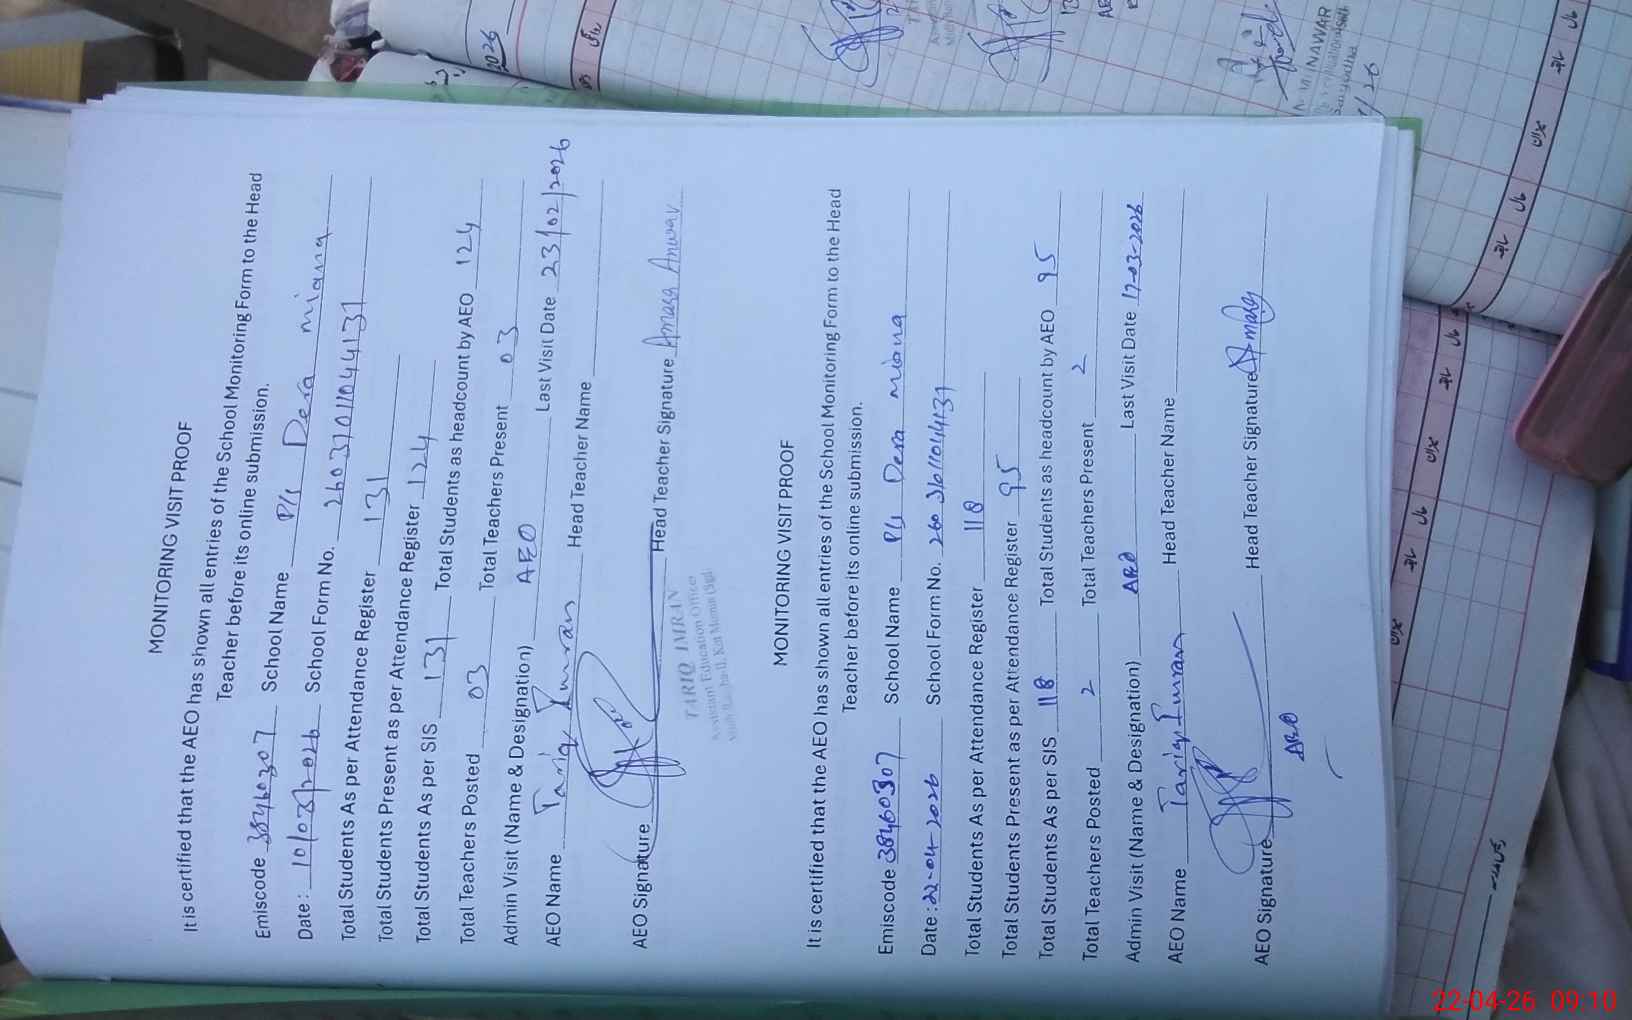 MONITORING VISIT PROOF
It is certified that the AEO has shown all entries of the School Monitoring Form to the Head
Teacher before its online submission.
Emiscode 38460307 School Name P/s Dera miana
Date: 10/03/2026 School Form No. 26031011044131
Total Students As per Attendance Register 131
Total Students Present as per Attendance Register 124
Total Students As per SIS 131 Total Students as headcount by AEO 124
Total Teachers Posted 03 Total Teachers Present 03
Admin Visit (Name & Designation) AEO Last Visit Date 23/02/2026
AEO Name Tariq Imran Head Teacher Name
AEO Signature Head Teacher Signature Amara Anwar
TARIQ IMRAN
Assistant Education Officer
MONITORING VISIT PROOF
It is certified that the AEO has shown all entries of the School Monitoring Form to the Head
Teacher before its online submission.
Emiscode 38460307 School Name P/s Dera miana
Date: 22-04-2026 School Form No.
Total Students As per Attendance Register 118
Total Students Present as per Attendance Register 95
Total Students As per SIS 118 Total Students as headcount by AEO 95
Total Teachers Posted 2 Total Teachers Present 2
Admin Visit (Name & Designation) AEO Last Visit Date 17-03-2026
AEO Name Tariq Imran Head Teacher Name
AEO Signature Head Teacher Signature
AEO
2026
NAWAR
22-04-26 09:10